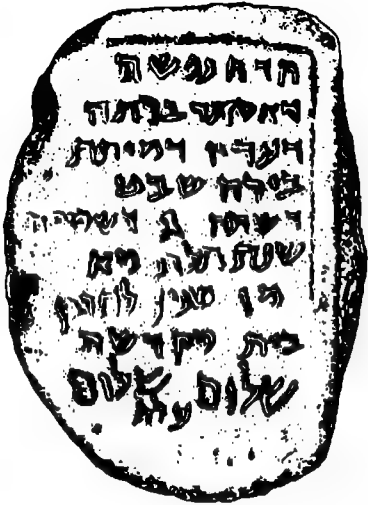 הדא נפשה
דאסתר ברתה
דעדיו דמיתת
בירח שבט
דשתה ג דשמיטה
שנת תלת מא
מו שנין לחרבן
בית מקדשה
שלום שלום